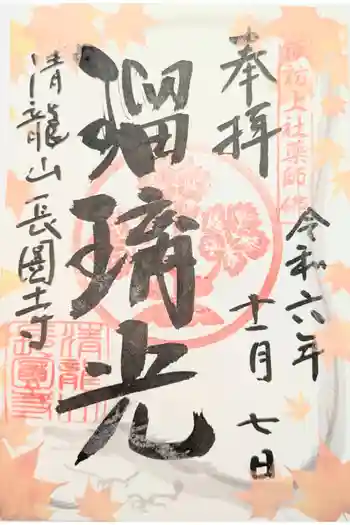 奉拝
諏訪上社薬師佛
令和六年
十二月七日
瑠璃光
清龍山長圓寺
清龍山
長圓寺